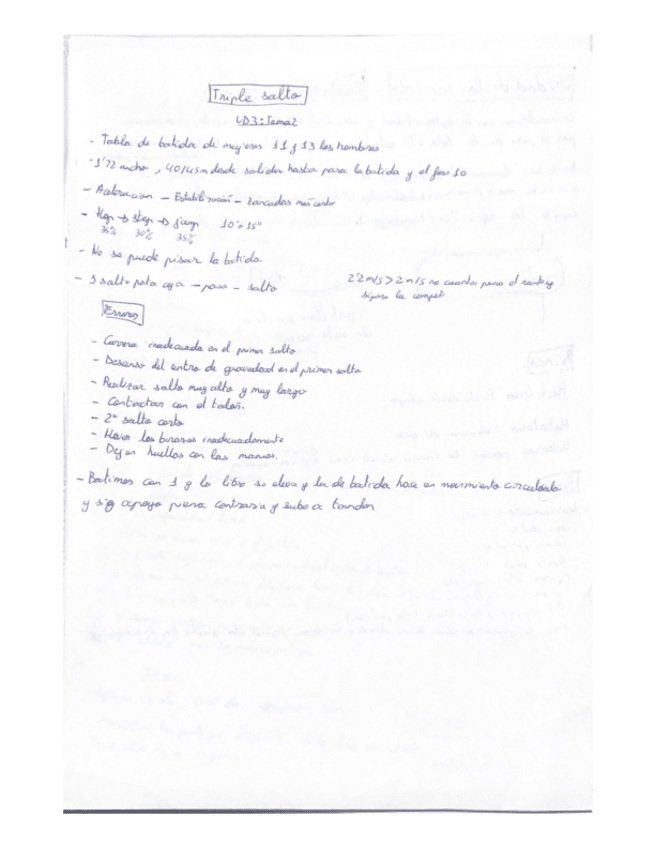 Triple salto
UD3: Tema 2
- Tabla de batida de mujeres 11 y 13 los hombres
- 1'22 ancho, 40/45m desde salida hasta para la batida y el foso 10
- Aceleracion - Estabilización - Zancadas mas
- Hop → step → jump 
35% 30% 35%
- No se puede pisar la batida.
- 3 salto pata coja - paso - salto
2'2 m/s > 2 m/s no cuenta para el ranking
si para la compet
Errores
- Carrera inadecuada en el primer salto
- Descenso del centro de gravedad en el primer salto
- Realizar salto muy alto y muy largo
- Contactar con el talón.
- 2º salto corto
- Mover los brazos inadecuadamente
- Dejar huellas con las manos.
- Batimos con 1 y la libre se eleva y la de batida hace un movimiento circulado
y sig apoyo pierna contraria y sube a